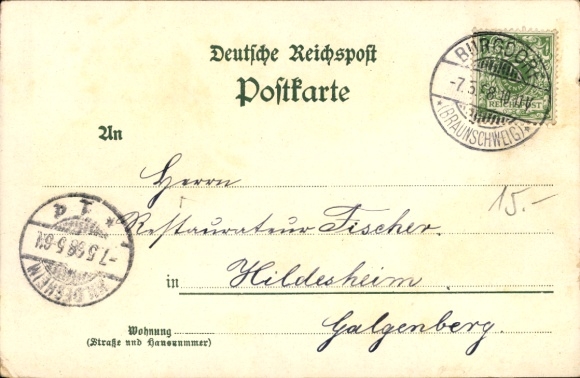 Deutsche Reichspost
Postkarte
BURGDORF
-7.5.98.
*(BRAUNSCHWEIG)*
REICHSPOST
An
Herrn
15.-
Restaurateur Fischer.
HILDESHEIM
-7.5.98.5-6N.
* 1 d
in Hildesheim
Galgenberg.
Wohnung
(Straße und Hausnummer)